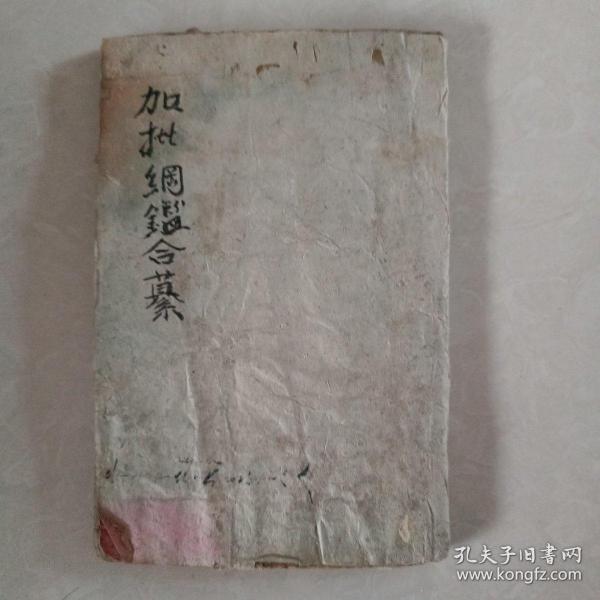 加批綱鑑合纂
孔夫子旧书网
www.kongfz.com